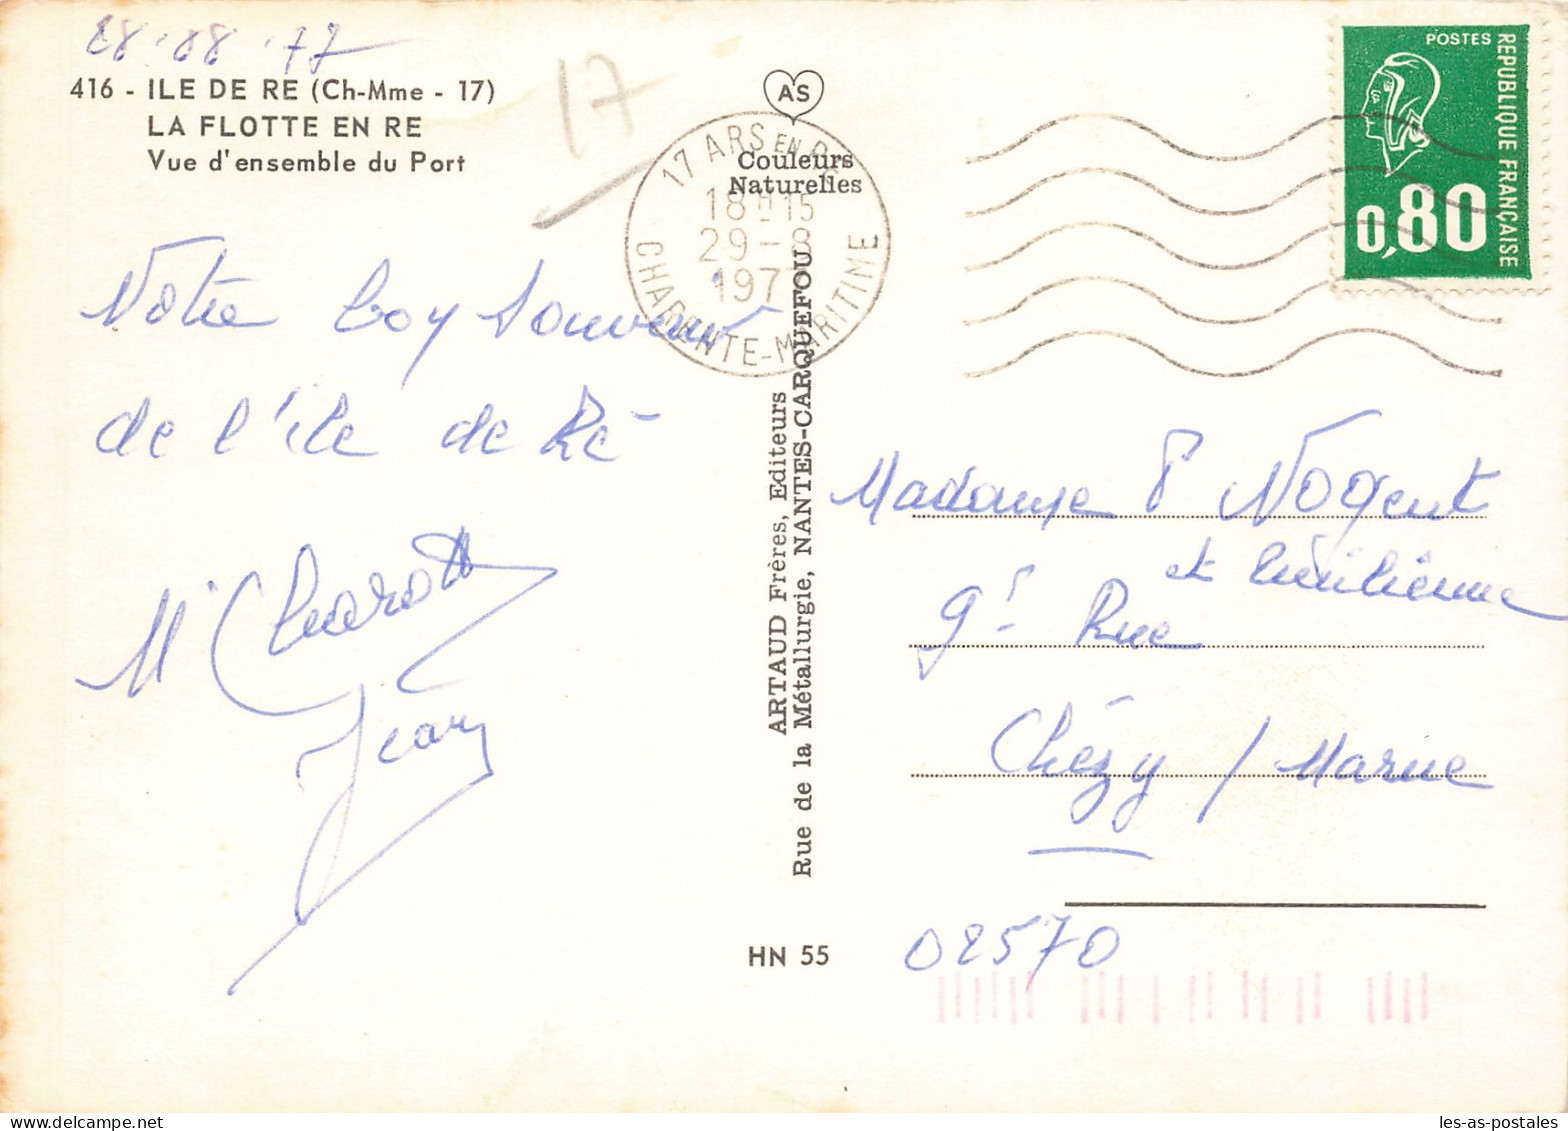 28.08.77
416 - ILE DE RE (Ch-Mme - 17)
LA FLOTTE EN RE
Vue d'ensemble du Port
17
AS
Couleurs
Naturelles
17 ARS EN RE
18H15
29-8
197
CHARENTE-MARITIME
POSTES
REPUBLIQUE FRANÇAISE
0,80
Notre boy Souvenir
de l'île de Ré
M
Jean
ARTAUD Frères, Editeurs
Rue de la Métallurgie, NANTES-CARQUEFOU
Madame P Nogent
et Emilienne
gr Rue
Chézy / Marne
02570
HN 55
les-as-postales